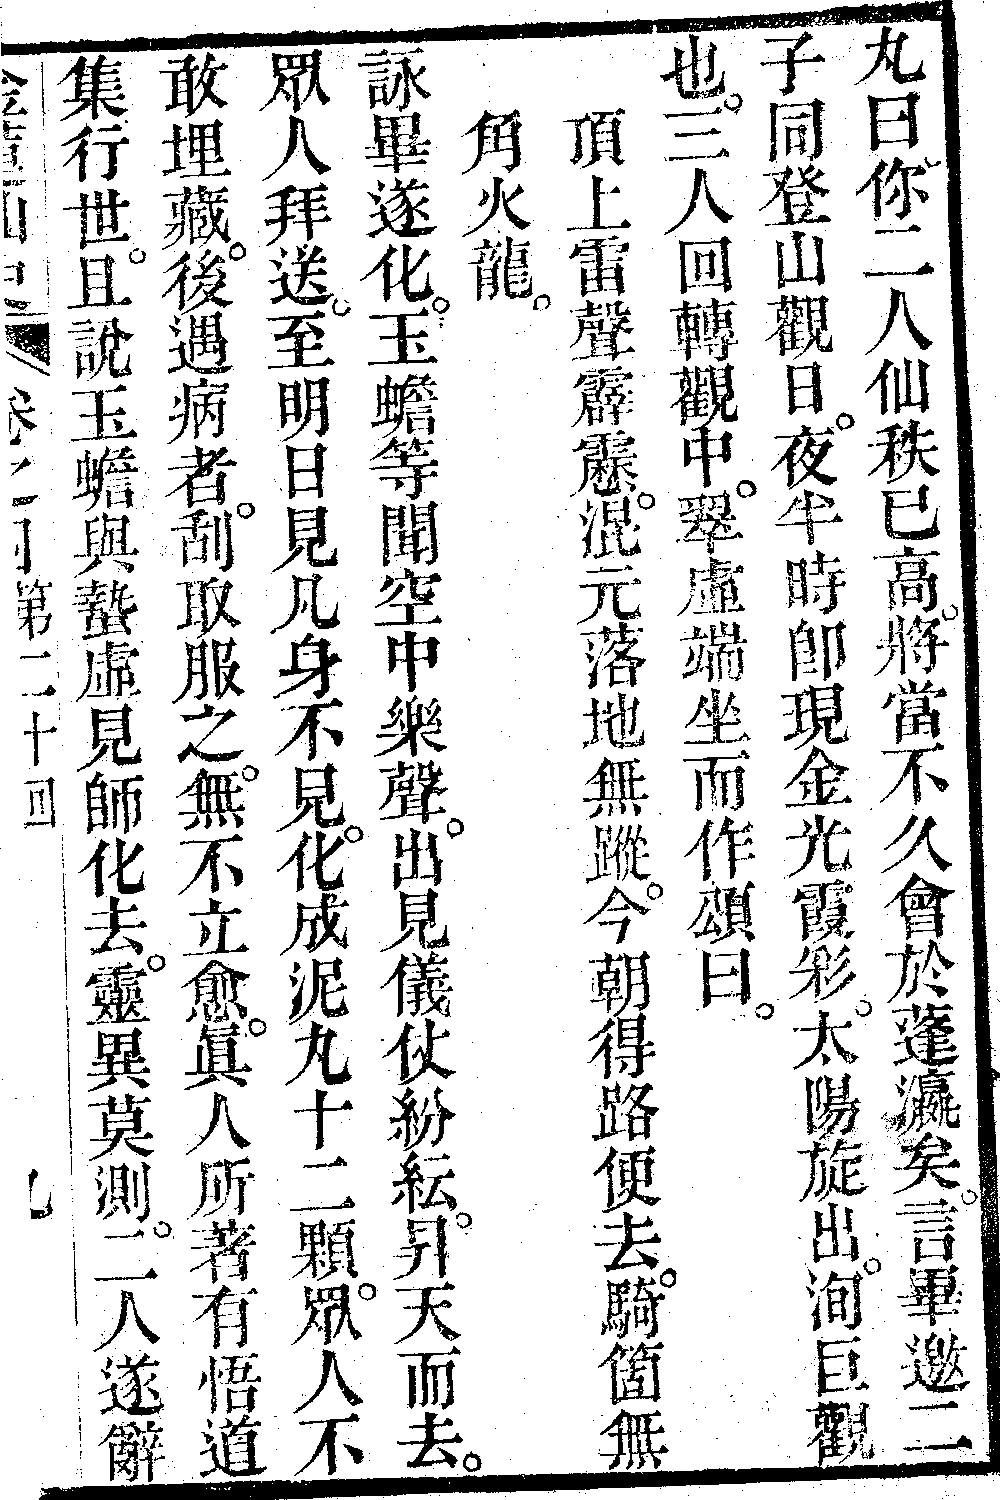 丸曰你二人仙秩已高將當不久會於蓬瀛矣言畢邀二
子同登山觀日夜半時卽現金光霞彩太陽旋出洵巨觀
也三人回轉觀中翠虛端坐而作頌曰
頂上雷聲霹靂混元落地無蹤今朝得路便去騎箇無
角火龍
詠畢遂化玉蟾等聞空中樂聲出見儀仗紛紜昇天而去
眾人拜送至明日見凡身不見化成泥丸十二顆眾人不
敢埋藏後遇病者刮取服之無不立愈眞人所著有悟道
集行世且說玉蟾與蟄虛見師化去靈異莫測二人遂辭
卷之 第二十回